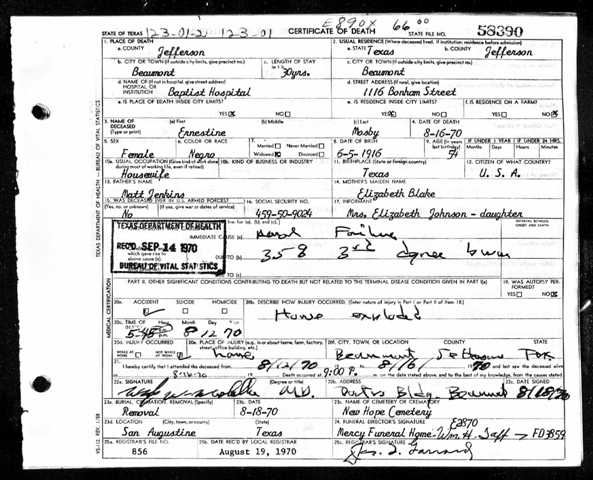 E890X 66 00
STATE OF TEXAS 123-01-2 123-01 CERTIFICATE OF DEATH STATE FILE NO. 58390
1. PLACE OF DEATH
a. COUNTY
Jefferson
2. USUAL RESIDENCE (Where deceased lived. If institution: residence before admission)
a. STATE Texas b. COUNTY Jefferson
b. CITY OR TOWN (If outside city limits, give precinct no.)
Beaumont
c. LENGTH OF STAY
30yrs.
c. CITY OR TOWN (If outside city limits, give precinct no.)
Beaumont
d. NAME OF (If not in hospital, give street address)
HOSPITAL OR
INSTITUTION Baptist Hospital
d. STREET ADDRESS (If rural, give location)
1116 Bonham Street
e. IS PLACE OF DEATH INSIDE CITY LIMITS?
YES NO
e. IS RESIDENCE INSIDE CITY LIMITS?
YES NO
f. IS RESIDENCE ON A FARM?
YES NO
3. NAME OF DECEASED
(Type or print)
(a) First
Ernestine
(b) Middle
(c) Last
Mosby
4. DATE OF DEATH
8-16-70
5. SEX
Female
6. COLOR OR RACE
Negro
7. Married Never Married
Widowed Divorced
8. DATE OF BIRTH
5-5-1916
9. AGE (In years last birthday)
54
IF UNDER 1 YEAR
Months Days
IF UNDER 24 HRS.
Hours Min.
10a. USUAL OCCUPATION (Give kind of work done during most of working life, even if retired)
Housewife
10b. KIND OF BUSINESS OR INDUSTRY
11. BIRTHPLACE (State or foreign country)
Texas
12. CITIZEN OF WHAT COUNTRY?
U. S. A.
13. FATHER'S NAME
Matt Jenkins
14. MOTHER'S MAIDEN NAME
Elizabeth Blake
15. WAS DECEASED EVER IN U.S. ARMED FORCES?
(Yes, no, or unknown) (If yes, give war or dates of service)
No
16. SOCIAL SECURITY NO.
459-50-9024
17. INFORMANT
Mrs. Elizabeth Johnson - daughter
TEXAS DEPARTMENT OF HEALTH
REC'D SEP 14 1970
BUREAU OF VITAL STATISTICS
IMMEDIATE CAUSE
Failure
3rd degree burn
PART II. OTHER SIGNIFICANT CONDITIONS CONTRIBUTING TO DEATH BUT NOT RELATED TO THE TERMINAL DISEASE CONDITION GIVEN IN PART I(a)
19. WAS AUTOPSY PERFORMED?
YES NO
20a. ACCIDENT SUICIDE HOMICIDE
20b. DESCRIBE HOW INJURY OCCURRED. (Enter nature of injury in Part I or Part II of item 18.)
House exploded
20c. TIME OF INJURY Hour Month Day Year
5:45 8 12 70
20d. INJURY OCCURRED
20e. PLACE OF INJURY (e.g., in or about home, farm, factory, street, office building, etc.)
home
20f. CITY, TOWN, OR LOCATION COUNTY STATE
Beaumont Jefferson Tex
21. I hereby certify that I attended the deceased from 8/12/70 to 8/16 1970 and last saw the deceased alive on
8-16-70 Death occurred at 9:00 P.m. on the date stated above, and to the best of my knowledge, from the causes stated.
22a. SIGNATURE (Degree or title)
M.D.
22b. ADDRESS
Doctors Bldg. Beaumont
22c. DATE SIGNED
8/18/70
23a. BURIAL, CREMATION, REMOVAL (Specify)
Removal
23b. DATE
8-18-70
23c. NAME OF CEMETERY OR CREMATORY
New Hope Cemetery
23d. LOCATION (City, town, or county) (State)
San Augustine Texas
24. FUNERAL DIRECTOR'S SIGNATURE E2870
Mercy Funeral Home-
25a. REGISTRAR'S FILE NO.
856
25b. DATE REC'D BY LOCAL REGISTRAR
August 19, 1970
25c. REGISTRAR'S SIGNATURE
TEXAS DEPARTMENT OF HEALTH - BUREAU OF VITAL STATISTICS
MEDICAL CERTIFICATION